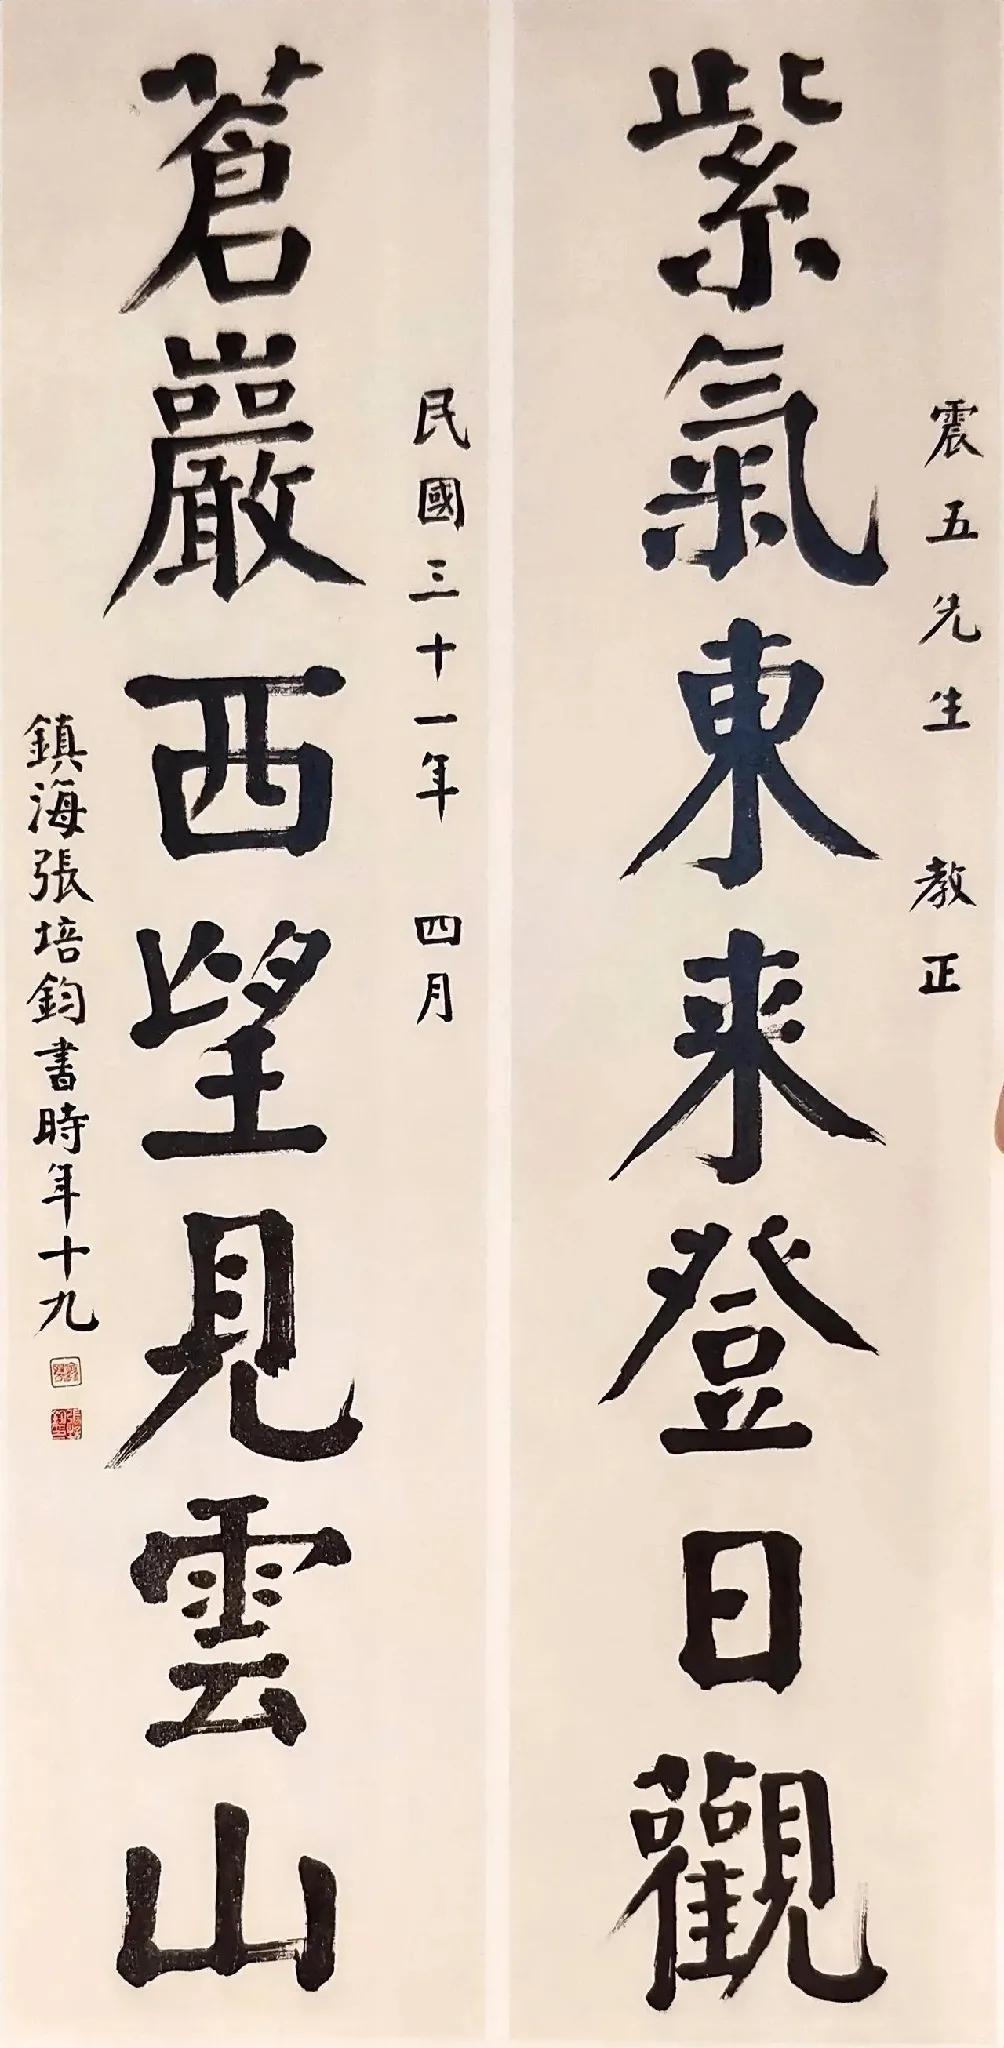 震五先生 教正
紫氣東来登日觀
民國三十一年 四月
蒼巖西望見雲山
鎮海張培鈞書時年十九